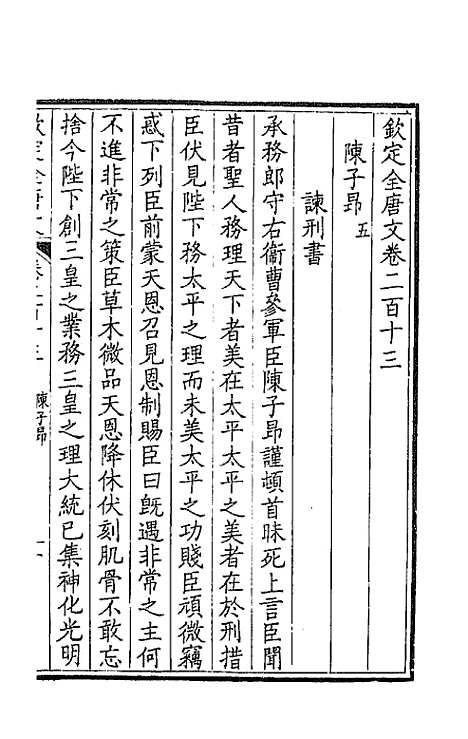 欽定全唐文卷二百十三
陳子昂五
諫刑書
承務郎守右衞曹參軍臣陳子昂謹頓首昧死上言臣聞
昔者聖人務理天下者美在太平太平之美者在於刑措
臣伏見陛下務太平之理而未美太平之功賤臣頑微竊
惑下列臣前蒙天恩召見恩制賜臣曰旣遇非常之主何
不進非常之策臣草木微品天恩降休伏刻肌骨不敢忘
捨今陛下創三皇之業務三皇之理大統已集神化光明
陳子昂